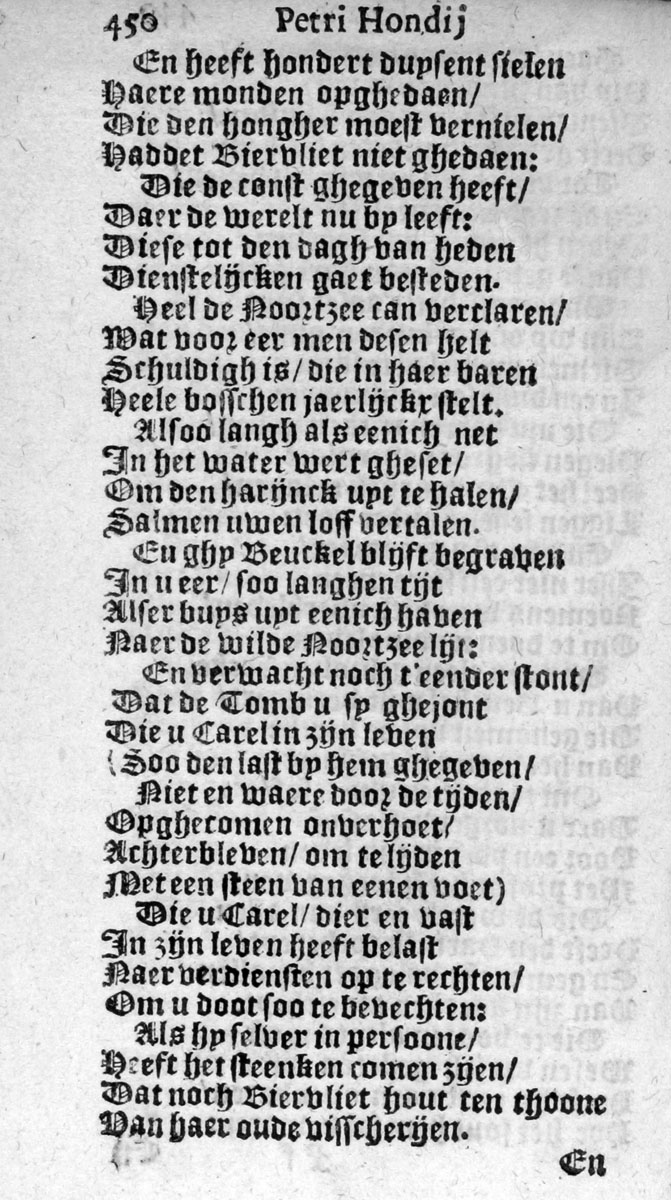 450 Petri Hondij
En heeft hondert duysent sielen
Haere monden opghedaen/
Die den hongher moest vernielen/
Haddet Biervliet niet ghedaen:
Die de const ghegeven heeft/
Daer de werelt nu by leeft:
Diese tot den dagh van heden
Dienstelijcken gaet besteden.
Heel de Noortzee can verclaren/
Wat voor eer men desen helt
Schuldigh is/ die in haer baren
Heele bosschen jaerlijckx stelt.
Alsoo langh als eenich net
In het water wert gheset/
Om den harijnck uyt te halen/
Salmen uwen loff vertalen.
En ghy Beuckel blijft begraven
In u eer/ soo langhen tijt
Alser buys uyt eenich haven
Naer de wilde Noortzee lijt:
En verwacht noch t'eender stont/
Dat de Tomb u sy ghejont
Die u Carel in zijn leven
(Soo den last by hem ghegeven/
Niet en waere door de tijden/
Opghecomen onverhoet/
Achterbleven/ om te lijden
Met een steen van eenen voet)
Die u Carel/ dier en vast
In zijn leven heeft belast
Naer verdiensten op te rechten/
Om u doot soo te bevechten:
Als hy selver in persoone/
Heeft het steenken comen zijen/
Dat noch Biervliet hout ten thoone
Van haer oude visscherijen.
En